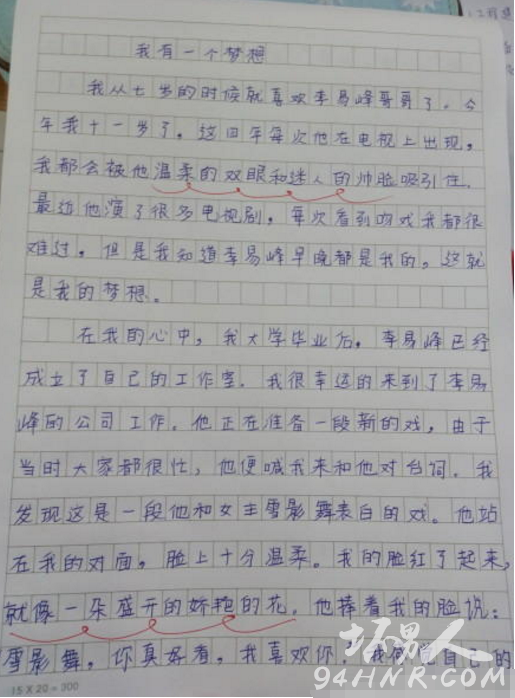 我有一个梦想
我从七岁的时候就喜欢李易峰哥哥了。今
年我十一岁了。这四年每次他在电视上出现,
我都会被他温柔的双眼和迷人的帅脸吸引住.
最近他演了很多电视剧,每次看到吻戏我都很
难过。但是我知道李易峰早晚都是我的。这就
是我的梦想。
在我的心中,我大学毕业后,李易峰已经
成立了自己的工作室.我很幸运的来到了李易
峰的公司工作.他正在准备一段新的戏,由于
当时大家都很忙,他便喊我来和他对台词.我
发现这是一段他和女主雪影舞表白的戏。他站
在我的对面,脸上十分温柔。我的脸红了起来,
就像一朵盛开的娇艳的花.他捧着我的脸说:
雪影舞,你真好看,我喜欢你.我感觉自己的
15 X 20 = 300
坏男人
94HNR.COM